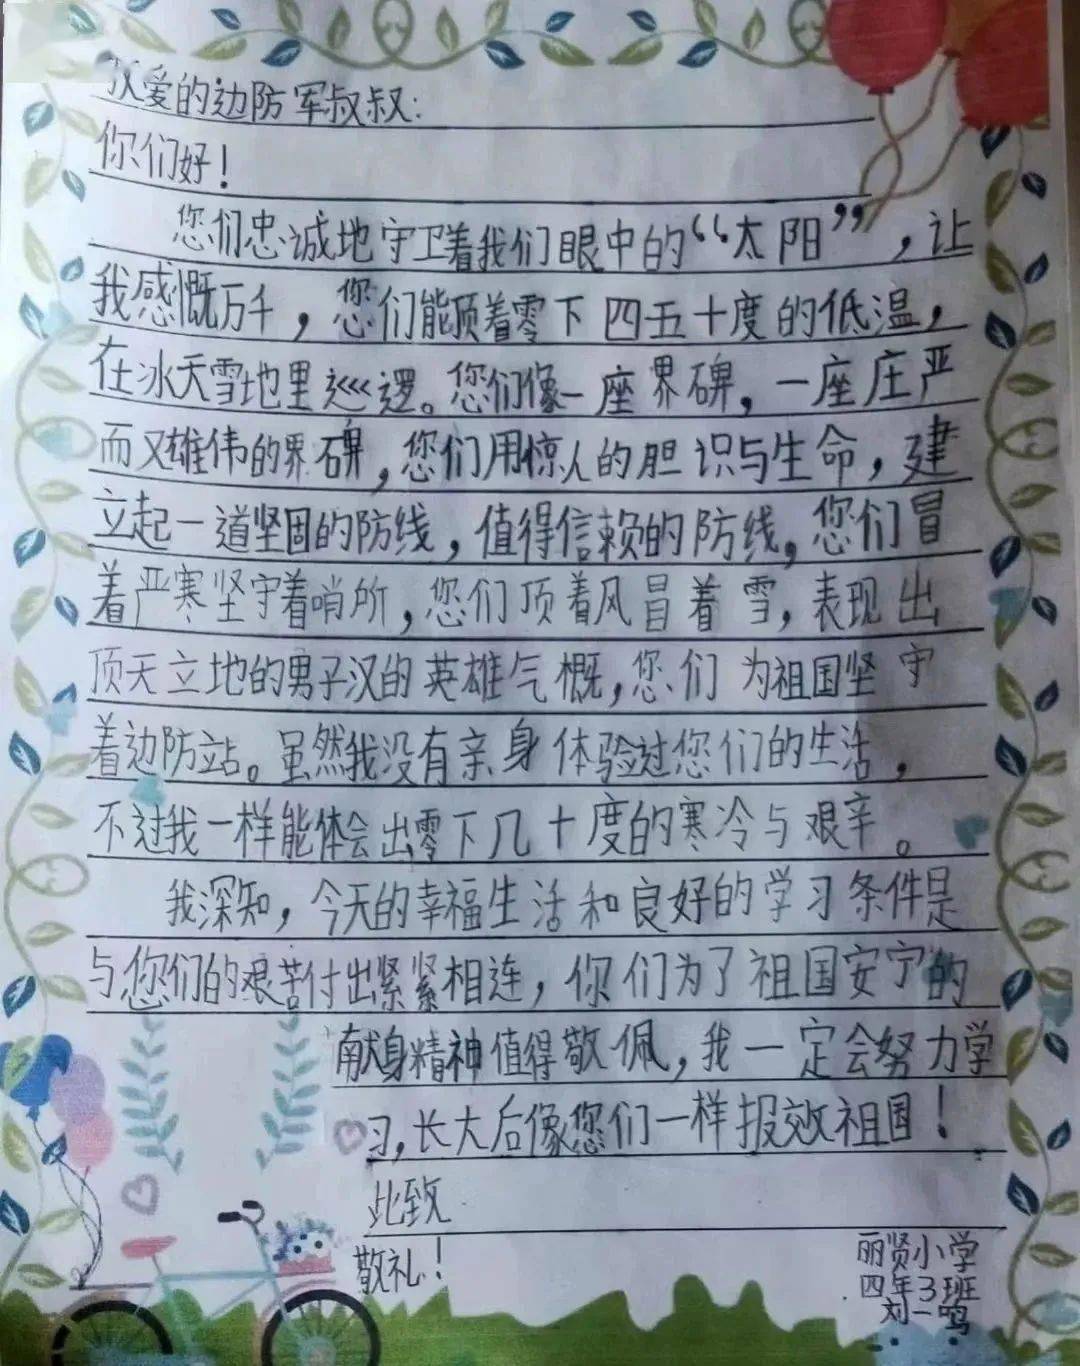 敬爱的边防军叔叔:
你们好!
您们忠诚地守卫着我们眼中的“太阳”,让
我感慨万千,您们能顶着零下四五十度的低温,
在冰天雪地里巡逻。您们像一座界碑,一座庄严
而又雄伟的界碑,您们用惊人的胆识与生命,建
立起一道坚固的防线,值得信赖的防线,您们冒
着严寒坚守着哨所,您们顶着风冒着雪,表现出
顶天立地的男子汉的英雄气概,您们为祖国坚守
着边防站。虽然我没有亲身体验过您们的生活,
不过我一样能体会出零下几十度的寒冷与艰辛。
我深知,今天的幸福生活和良好的学习条件是
与您们的艰苦付出紧紧相连,你们为了祖国安宁的
献身精神值得敬佩,我一定会努力学
习,长大后像您们一样报效祖国!
此致
敬礼!
丽贤小学
四年3班
刘一鸣